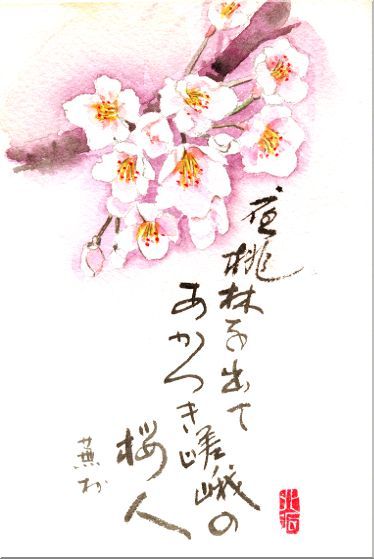 夜桃林を出て
あかつき嵯峨の
桜人
蕪村